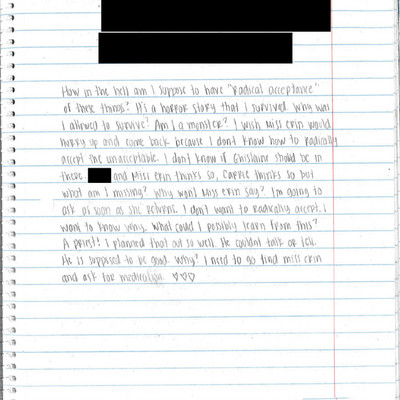 How in the hell am I suppose to have "radical acceptance"
of these things? It's a horror story that I survived. Why was
I allowed to survive? Am I a monster? I wish Miss Erin would
hurry up and come back because I don't know how to radically
accept the unacceptable. I don't know if Ghislaine should be in
there. and Miss Erin thinks so, Carrie thinks so but
what am I missing? Why won't Miss Erin say? I'm going to
ask as soon as she returns. I don't want to radically accept. I
want to know why. What could I possibly learn from this?
A priest! I planned that out so well. He couldnt talk or tell.
He is supposed to be good. Why? I need to go find miss erin
and ask for medication. ♡♡♡